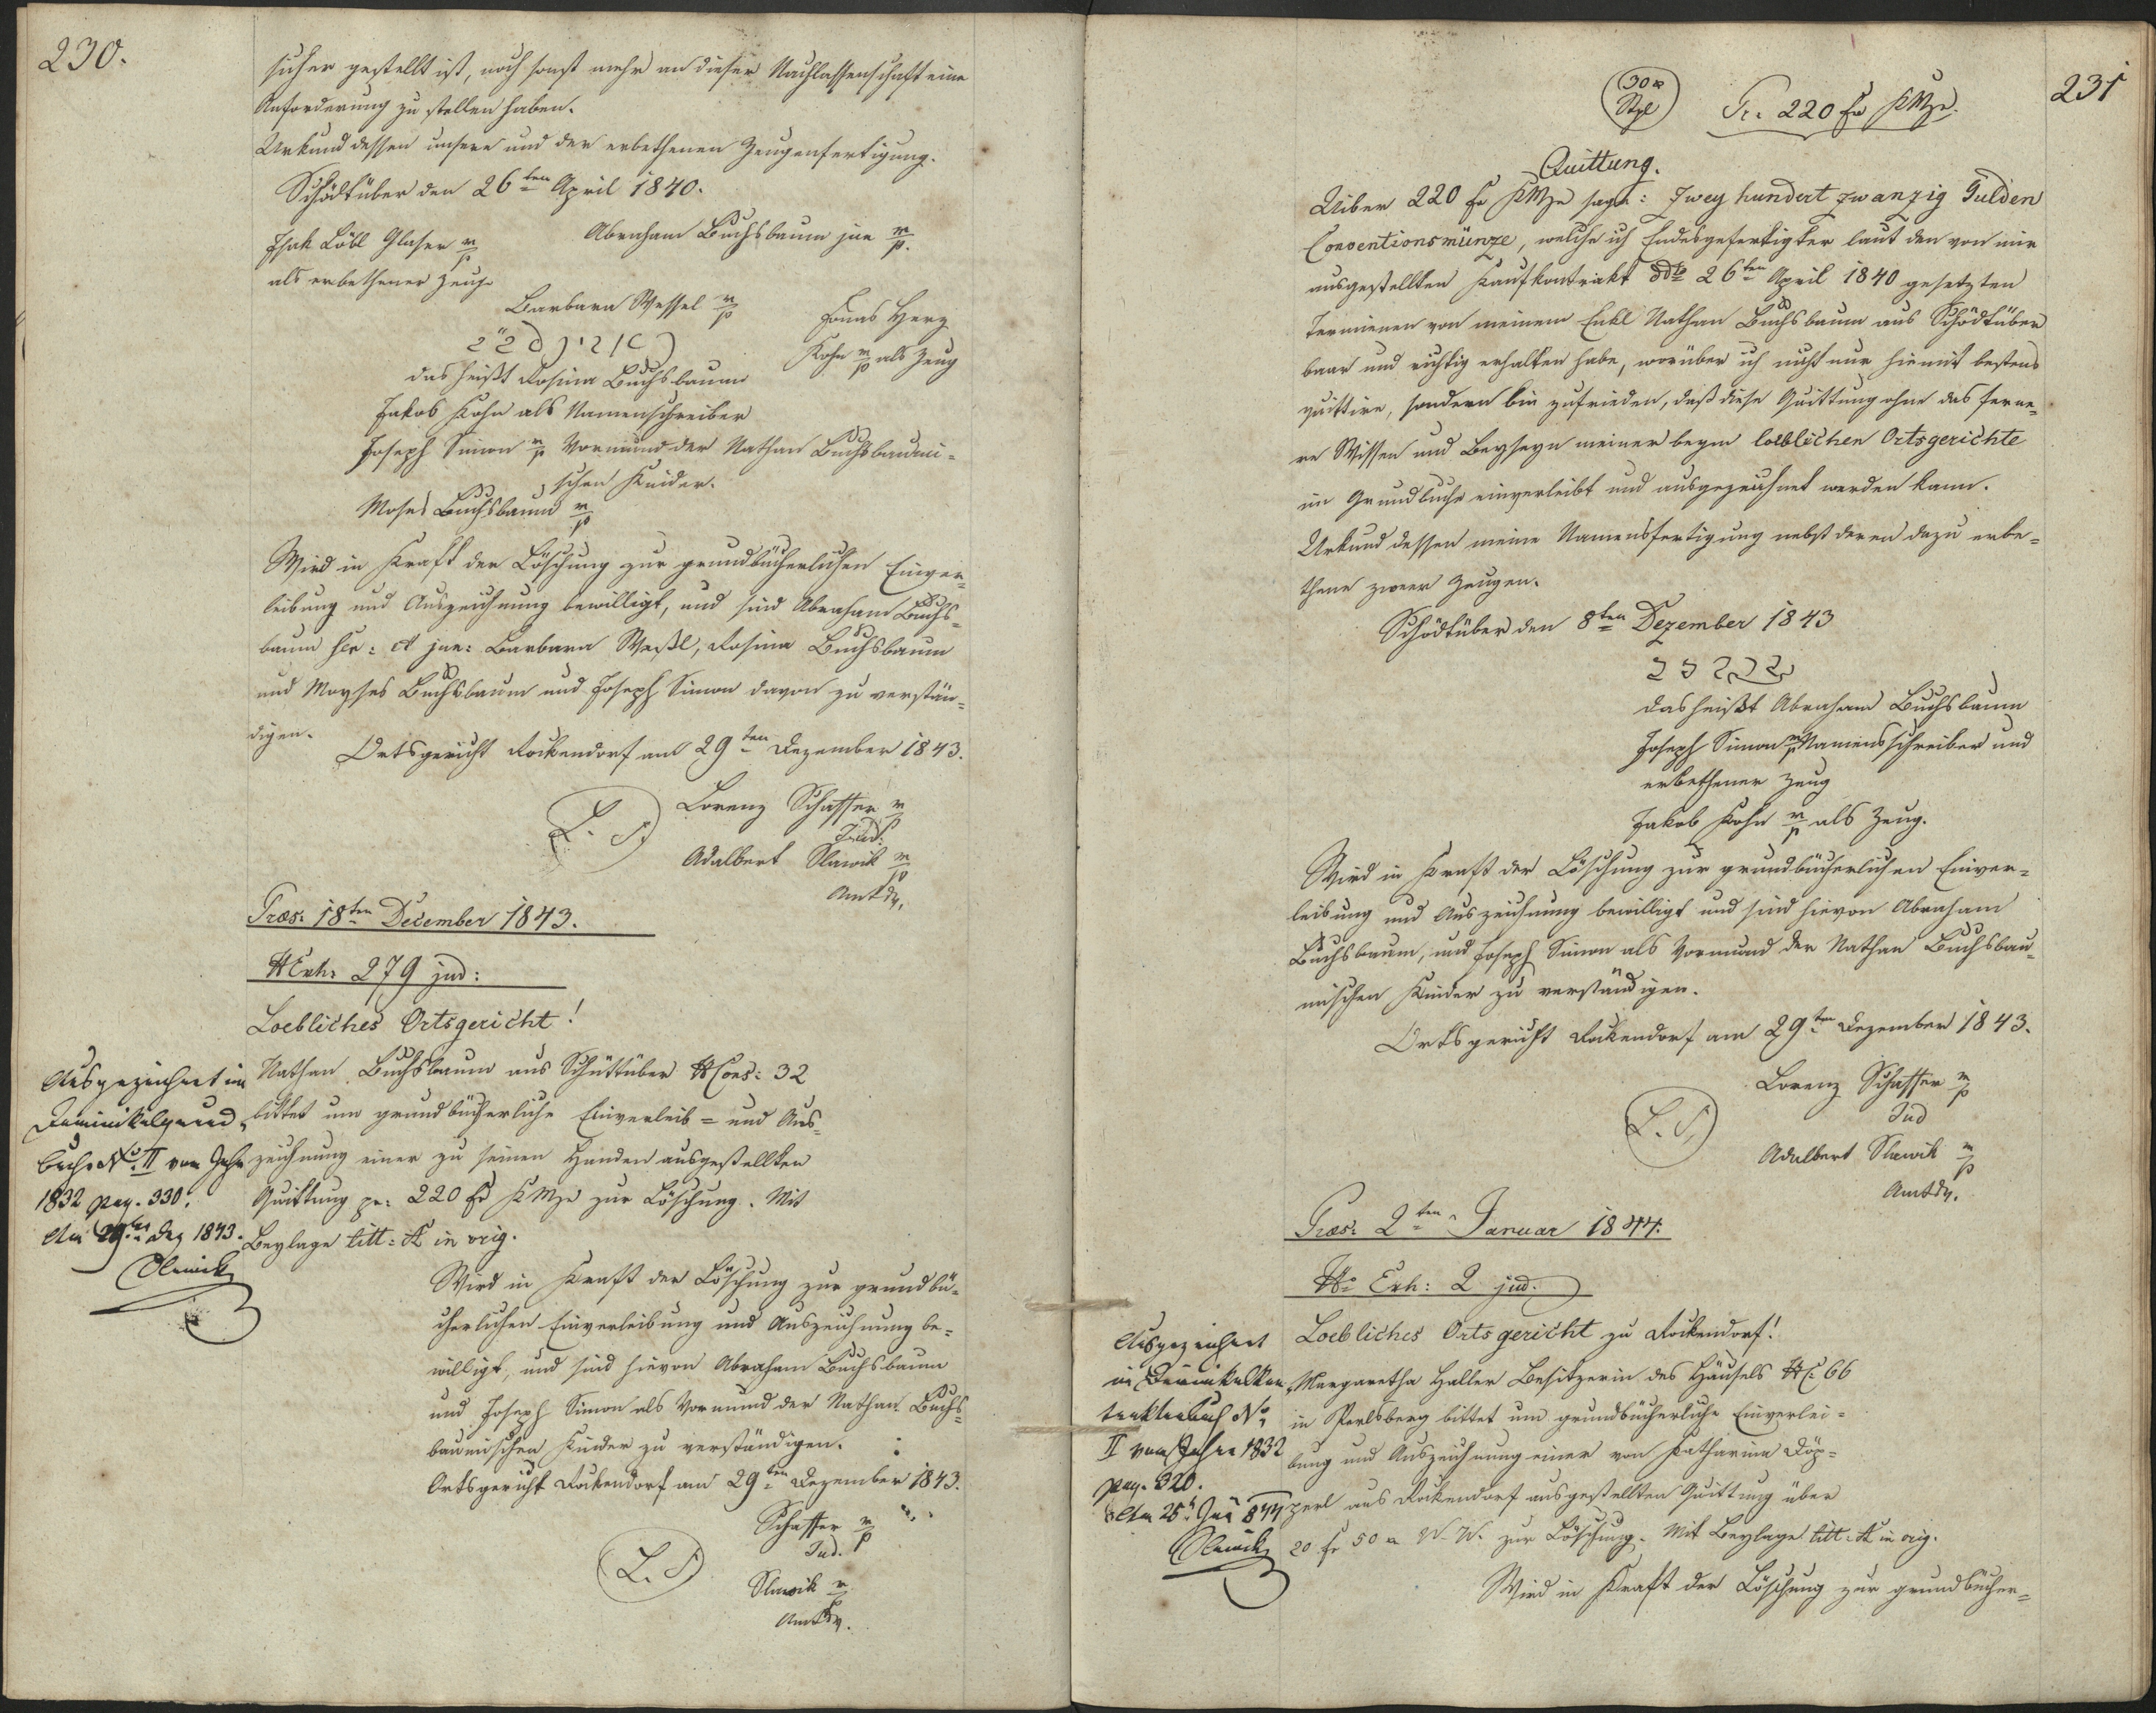 230.
sicher gestellt ist, noch sonst mehr an dieser Nachlassenschaft eine
Anforderung zu stellen haben.
Urkund dessen unsere und der erbethenen Zeugenfertigung.
Schödtüber den 26ten April 1840.
Isak Löbl Glaser m/p
Abraham Buchsbaum jun m/p.
als erbethener Zeuge
Barbara Wessel m/p
Jonas Herz
Kohn m/p als Zeug
das heißt Rosina Buchsbaum
Jakob Kohn als Namenschreiber
Joseph Simon m/p Vormund der Nathan Buchsbaumi-
schen Kinder.
Moses Buchsbaum m/p
Wird in Kraft der Löschung zur grundbücherlichen Einver-
leibung und Auszeichnung bewilligt, und sind Abraham Buchs-
baum sen: et jun: Barbara Weßl, Rosina Buchsbaum
und Moyses Buchsbaum und Joseph Simon davon zu verstän-
digen.
Ortsgericht Rockendorf am 29ten Dezember 1843.
L. S.
Lorenz Schaffer m/p
Jud.
Adalbert Slawik m/p
Amtdr.
Præs: 18ten December 1843.
N Exh: 279 jud:
Loebliches Ortsgericht!
Nathan Buchsbaum aus Schüttüber N Cons: 32
bittet um grundbücherliche Einverleib- und Aus-
zeichnung einer zu seinen Handen ausgestellten
Quittung pr: 220 fr KMze zur Löschung. Mit
Beylage litt: A in orig.
Ausgezeichnet im
Dominikalgrund-
buche No. II vom Jahre
1832 pag. 330.
Am 29ten Dez 1843.
Slawik
Wird in Kraft der Löschung zur grundbü-
cherlichen Einverleibung und Auszeichnung be-
willigt, und sind hievon Abraham Buchsbaum
und Joseph Simon als Vormund der Nathan Buchs-
baumischen Kinder zu verständigen.
Ortsgericht Rockendorf am 29ten Dezember 1843.
L. S
Schaffer m/p
Jud.
Slawik m/p
Amtdr.
231
30 x
Stpl
Pr. 220 fr KMze.
Quittung.
Uiber 220 fr KMze sage: Zwey hundert zwanzig Gulden
Conventionsmünze, welche ich Endesgefertigter laut den von mir
ausgestellten Kaufkontrakt ddto 26ten April 1840 gesetzten
Terminen von meinem Enkl Nathan Buchsbaum aus Schödtüber
baar und richtig erhalten habe, worüber ich nicht nur hiemit bestens
quittire, sondern bin zufrieden, daß diese Quittung ohne das ferne-
re Wissen und Beyseyn meiner beym loeblichen Ortsgerichte
im Grundbuche einverleibt und ausgezeichnet werden kann.
Urkund dessen meine Namensfertigung nebst deren dazu erbe-
thene zween Zeugen.
Schödtüber den 8ten Dezember 1843
das heißt Abraham Buchsbaum
Joseph Simon m/p Namensschreiber und
erbethener Zeug
Jakob Kohn m/p als Zeug.
Wird in Kraft der Löschung zur grundbücherlichen Einver-
leibung und Auszeichnung bewilligt und sind hievon Abraham
Buchsbaum, und Joseph Simon als Vormund der Nathan Buchsbau-
mischen Kinder zu verständigen.
Ortsgericht Rockendorf am 29ten Dezember 1843.
L. S.
Lorenz Schaffer m/p
Jud
Adalbert Slawik m/p
Amtdr.
Præs: 2ten Januar 1844.
No Exh: 2 jud.
Loebliches Ortsgericht zu Rockendorf!
Margaretha Haller Besitzerin des Häusels N C: 66
in Perlsberg bittet um grundbücherliche Einverlei-
bung und Auszeichnung einer von Katharina Döp-
perl aus Rockendorf ausgestellten Quittung über
20 fr 50 x W. W. zur Löschung. Mit Beylage litt: A in orig.
Ausgezeichnet
in Dominikalkon-
traktenbuch No
II vom Jahre 1832
pag. 320.
Slawik
Wird in Kraft der Löschung zur grundbücher-